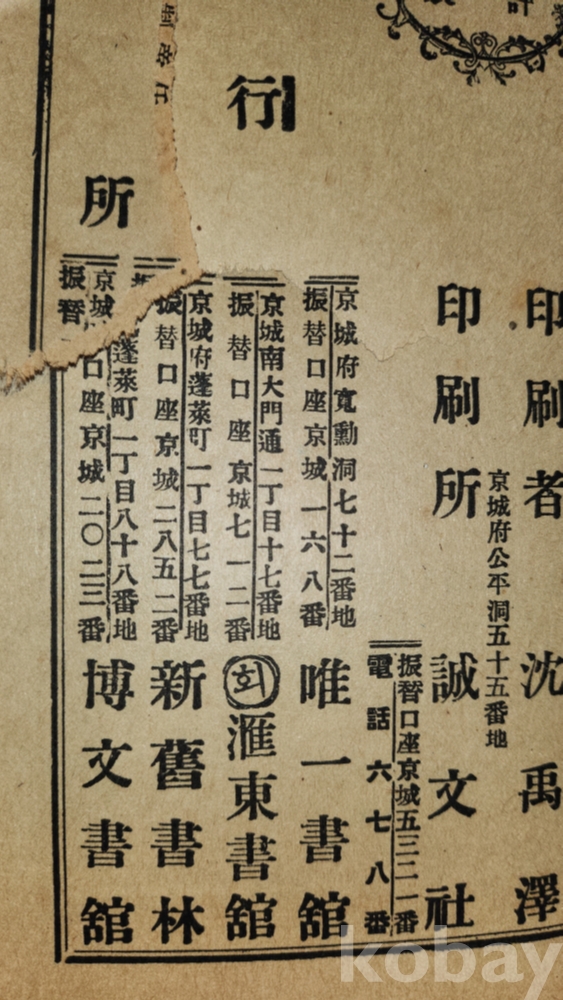 計
印刷者 沈禹澤
京城府公平洞五十五番地
印刷所 誠文社
振替口座京城五三二一番
電話六七八番
行所
京城府寬勳洞七十二番地
振替口座京城一六八番
唯一書舘
京城南大門通一丁目十七番地
振替口座京城七一二番
회 滙東書舘
京城府蓬萊町一丁目七七番地
振替口座京城二八五二番
新舊書林
京城 蓬萊町一丁目八十八番地
振替口座京城二〇二三番
博文書舘
kobay